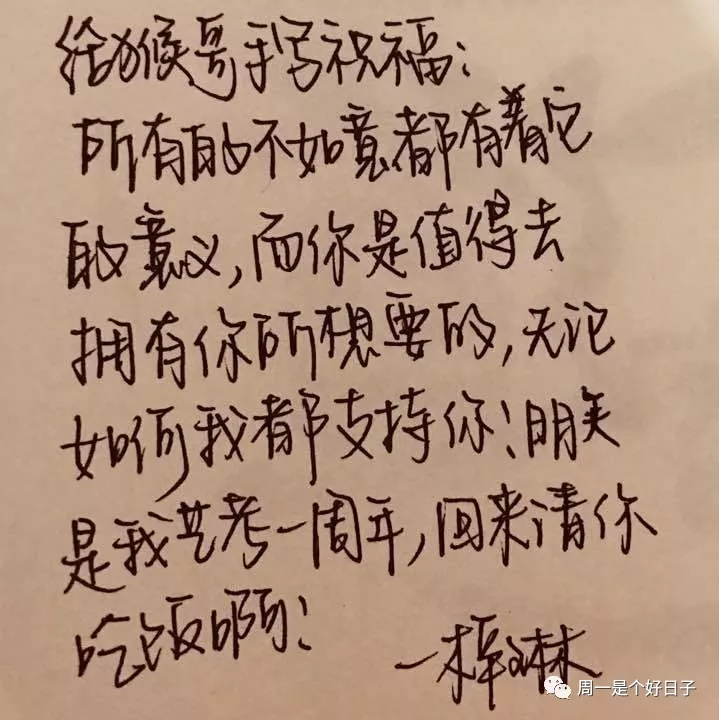 给猴哥手写祝福：
所有的不如意都有着它
的意义，而你是值得去
拥有你所想要的，无论
如何我都支持你！明天
是我艺考一周年，回来请你
吃饭啊！
一梓淋
周一是个好日子